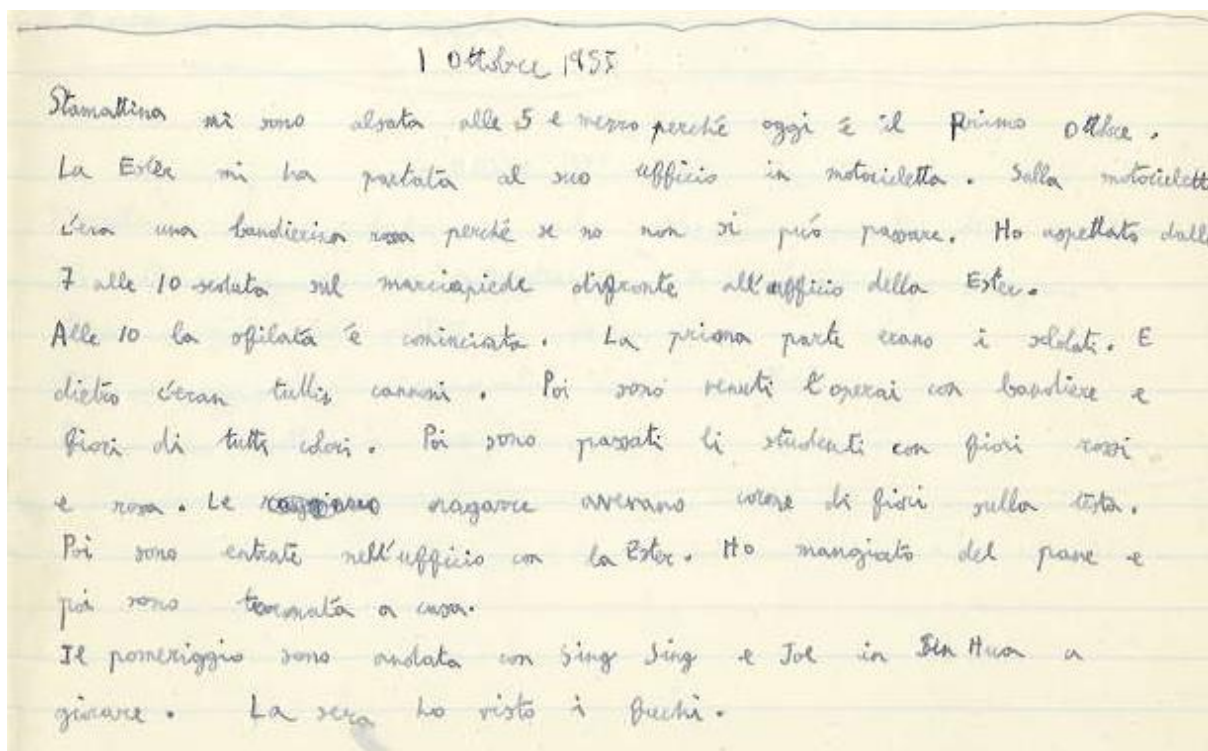 1 Ottobre 1955
Stamattina mi sono alzata alle 5 e mezzo perché oggi é il primo Ottobre.
La Ester mi ha portata al suo ufficio in motocicletta. Sulla motociclett
c'era una bandierina rossa perché se no non si puó passare. Ho aspettato dalle
7 alle 10 seduta sul marciapiede difronte all'ufficio della Ester.
Alle 10 la sfilata é cominciata. La prima parte erano i soldati. E
dietro c'eran tutti cannoni. Poi sono venuti l'operai con bandiere e
fiori di tutti colori. Poi sono passati li studenti con fiori rossi
e rosa. Le ragazze avevano corone di fiori sulla testa.
Poi sono entrati nell'ufficio con la Ester. Ho mangiato del pane e
poi sono tornata a casa.
Il pomeriggio sono andata con Sing Sing e Joe in Hua a
girare. La sera ho visto i fuchi.